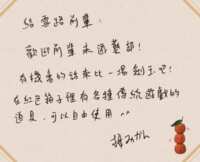 給雪路前輩：
歡迎前輩來遊藝部！
有機會的話來比一場劍玉吧！
在紅色箱子裡有各種傳統遊戲的
道具，可以自由使用 ^^
みかん